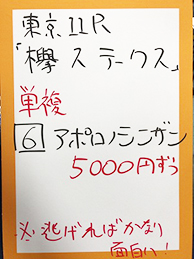 東京11R
「欅ステークス」
単複
6 アポロノシンザン
5000円ずつ
※逃げればかなり
面白い!